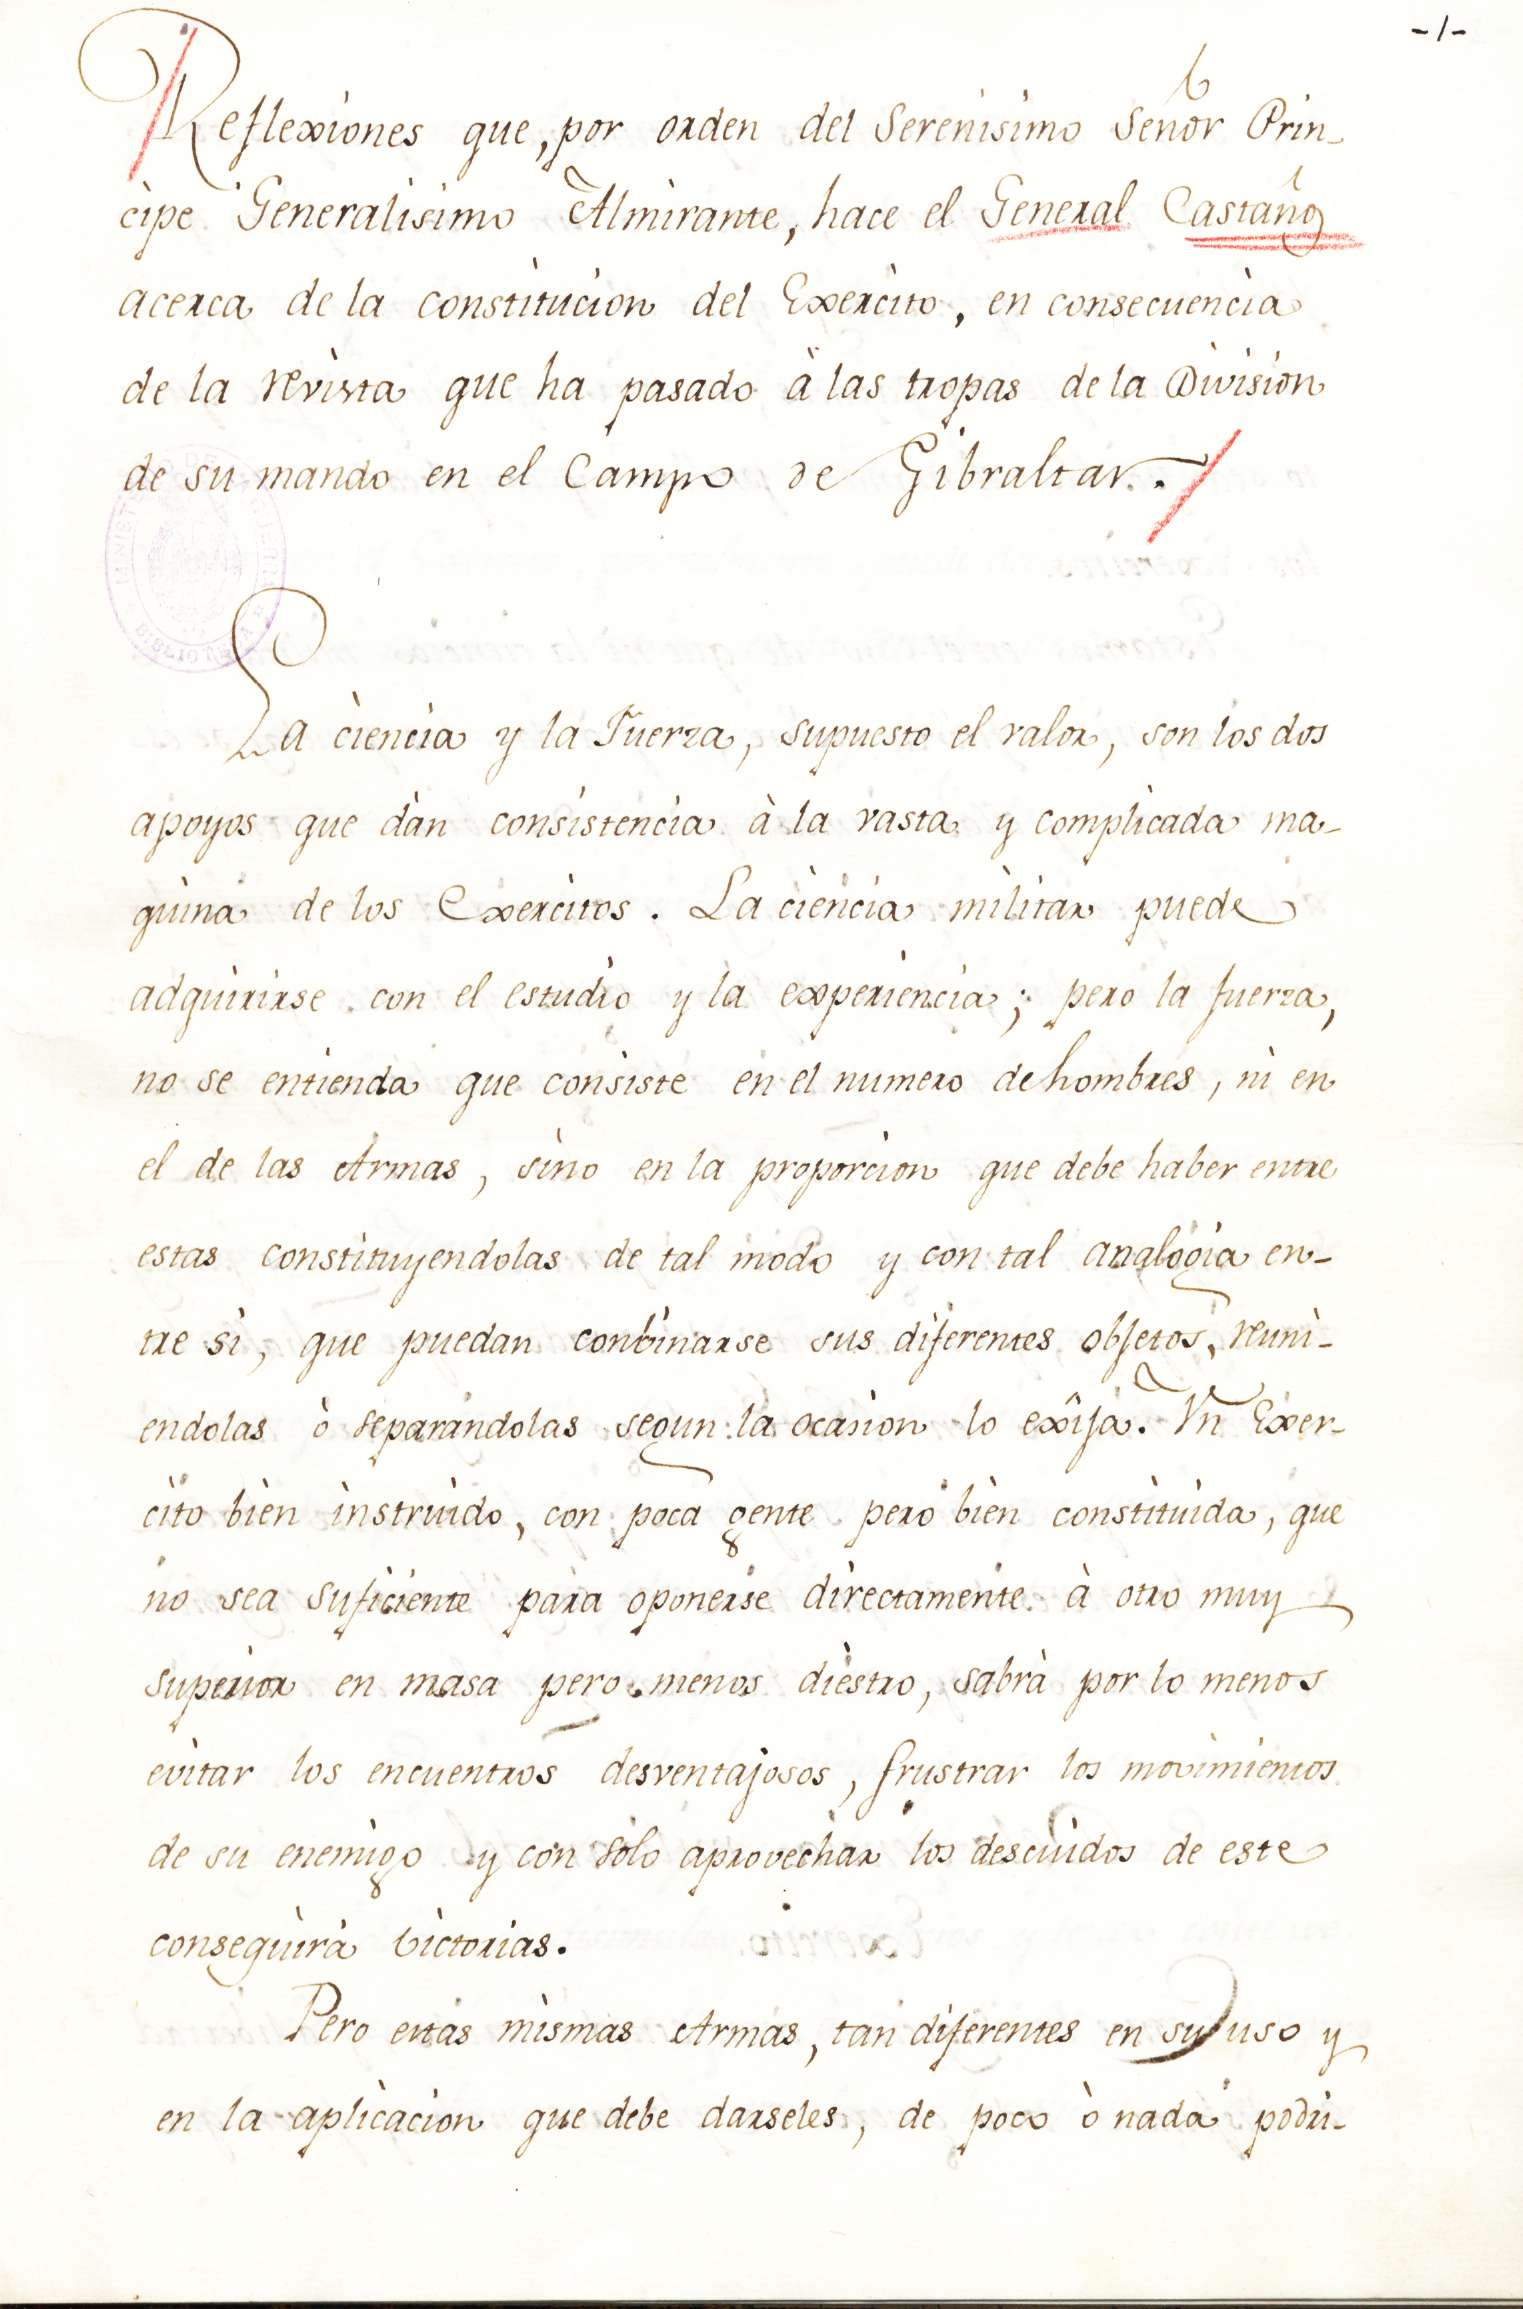 -1-
Reflexiones que, por orden del Serenisimo Señor Prin-
cipe Generalisimo Almirante, hace el General Castaños
acerca de la constitucion del Exercito, en consecuencia
de la revista que ha pasado à las tropas de la Division
de su mando en el Campo de Gibraltar.
La ciencia y la Fuerza, supuesto el valor, son los dos
apoyos que dàn consistencia à la vasta y complicada ma-
quina de los Exercitos. La ciencia militar puede
adquirirse con el estudio y la experiencia; pero la fuerza,
no se entienda que consiste en el numero de hombres, ni en
el de las Armas, sino en la proporcion que debe haber entre
estas constituyendolas de tal modo y con tal analogia en-
tre si, que puedan conbinarse sus diferentes objetos, reuni-
endolas ò separandolas segun la ocasion lo exîja. Vn Exer-
cito bien instruido, con poca gente pero bien constituida, que
no sea suficiente para oponerse directamente à otro muy
superior en masa pero menos diestro, sabrà por lo menos
evitar los encuentros desventajosos, frustrar los movimientos
de su enemigo y con solo aprovechar los descuidos de este
conseguirà victorias.
Pero estas mismas Armas, tan diferentes en su uso y
en la aplicacion que debe darseles, de poco ò nada podri-